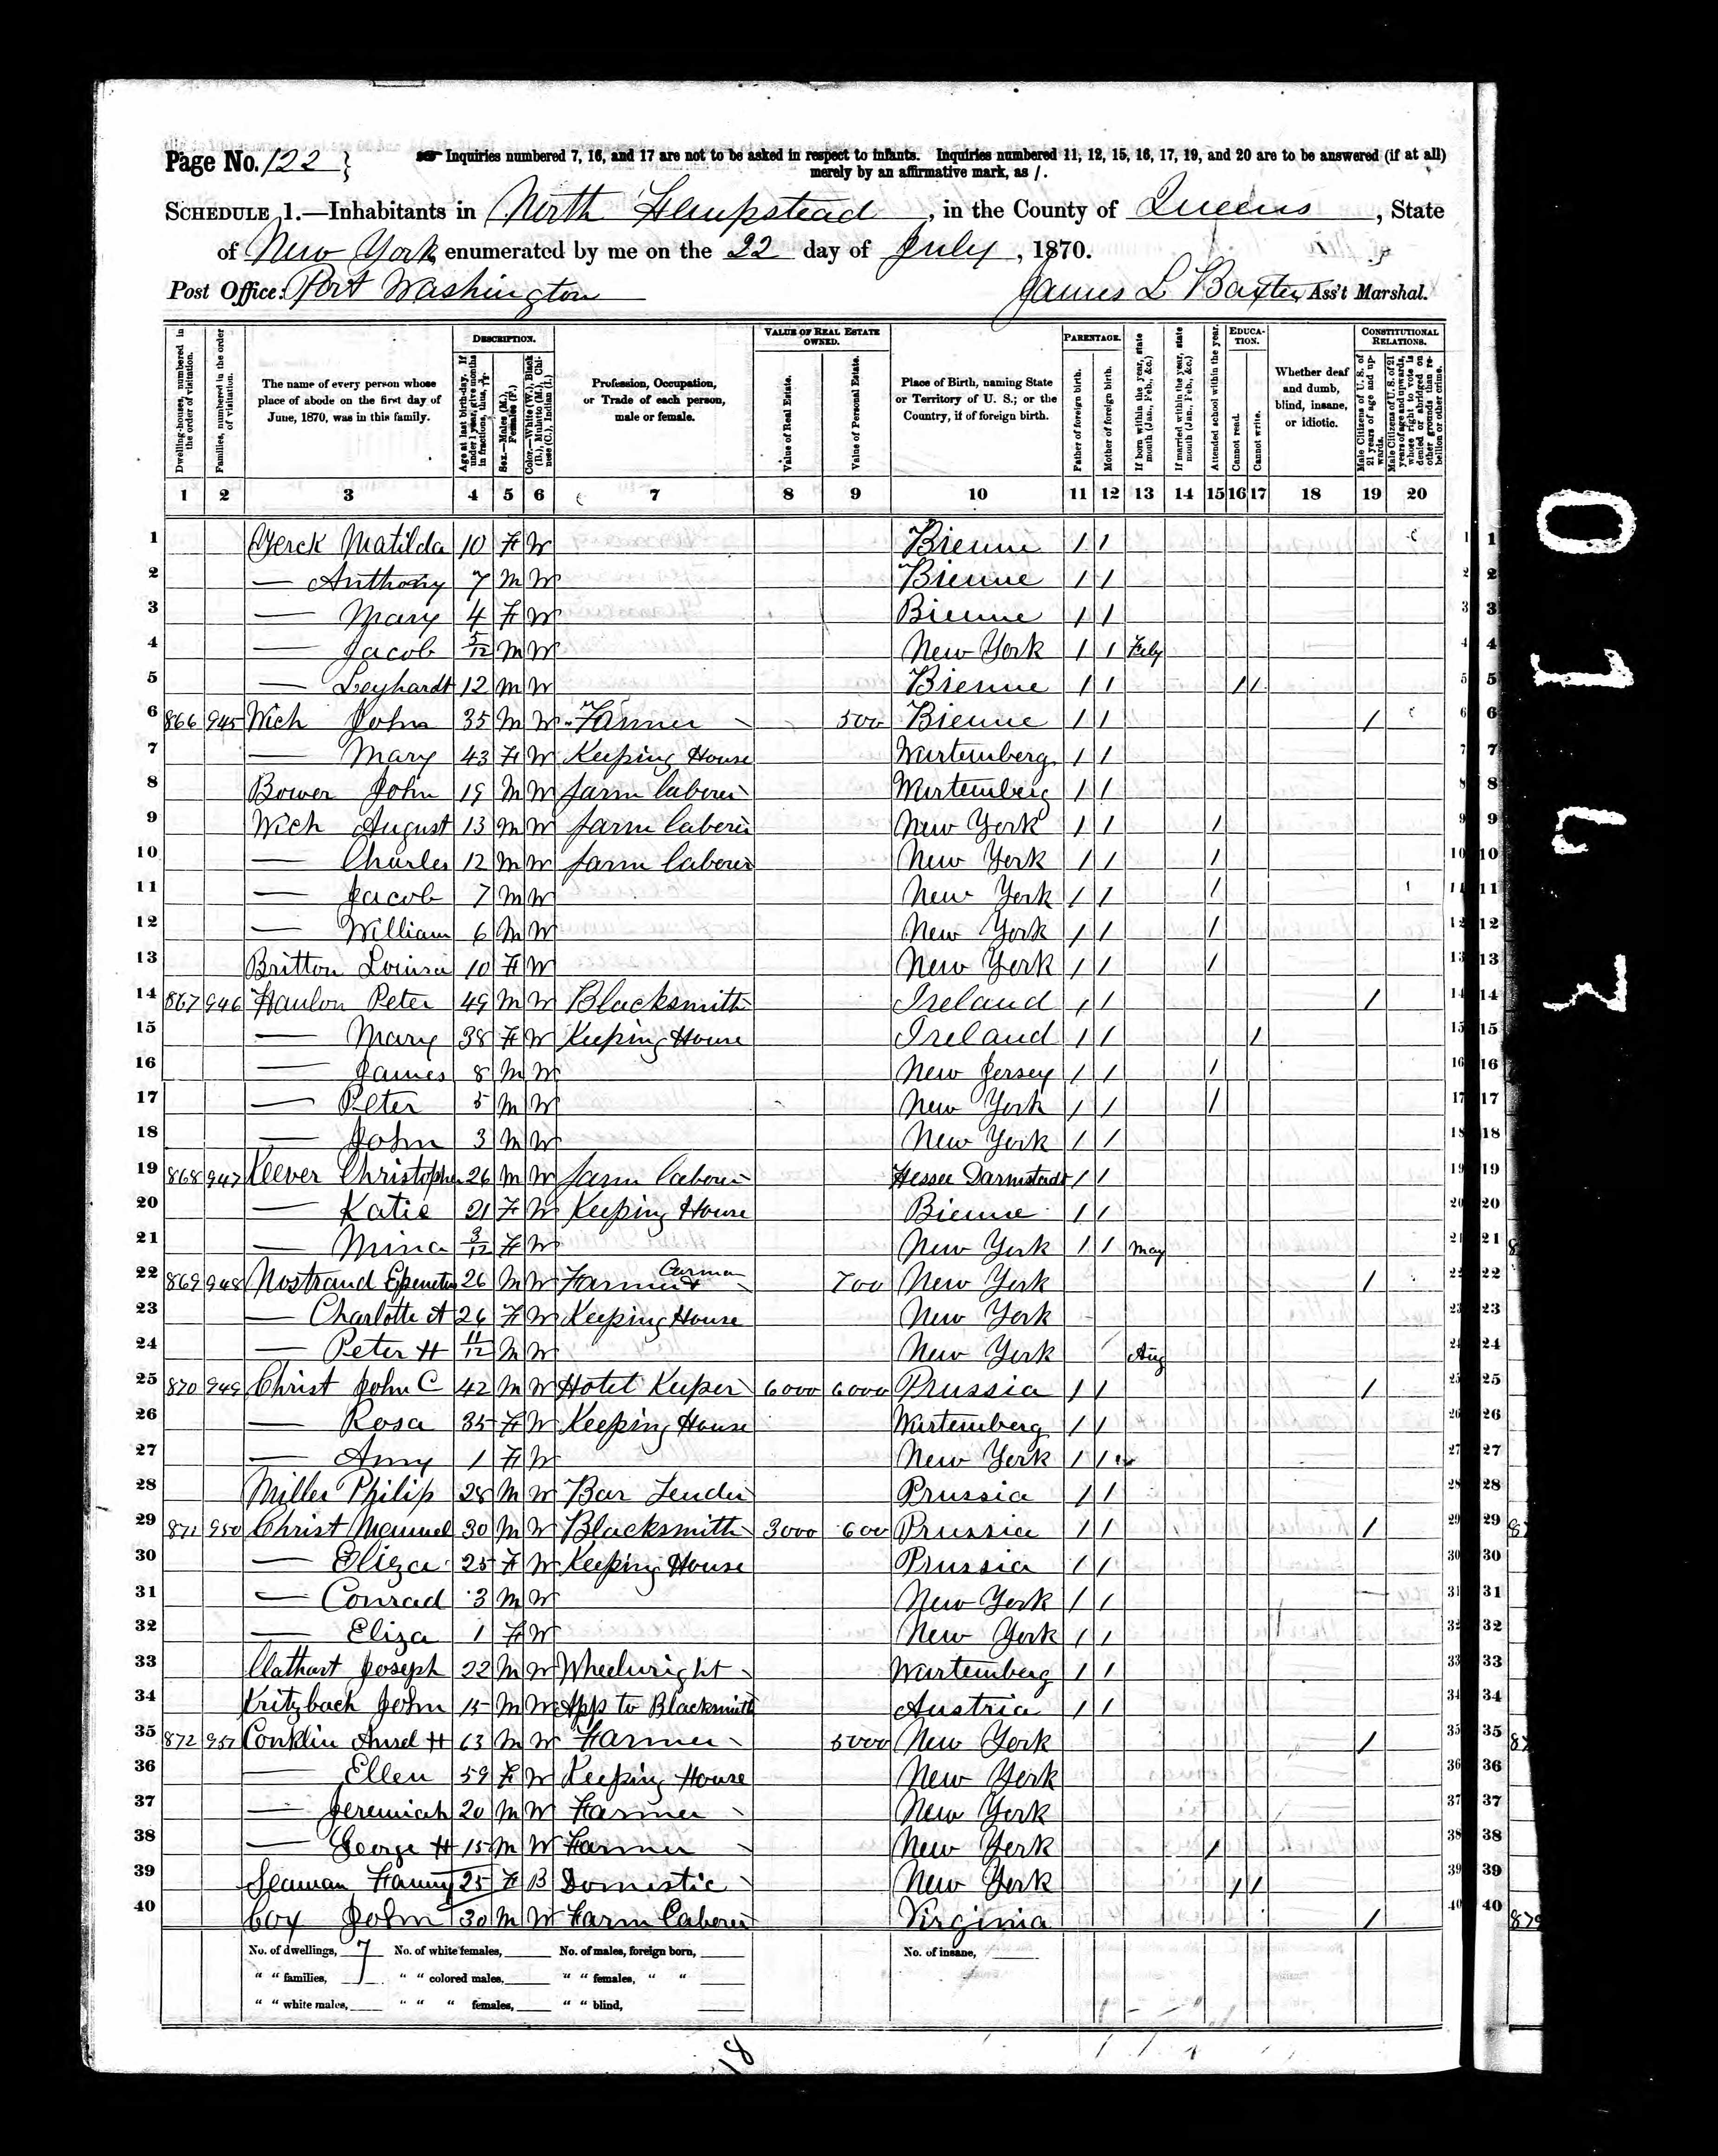 Page No. 122
Inquiries numbered 7, 16, and 17 are not to be asked in respect to infants. Inquiries numbered 11, 12, 15, 16, 17, 19, and 20 are to be answered (if at all)
merely by an affirmative mark, as /.
SCHEDULE 1.—Inhabitants in North Hempstead, in the County of Queens, State
of New York, enumerated by me on the 22 day of July, 1870.
Post Office: Port Washington James L Baxter, Ass't Marshal.
Dwelling-houses, numbered in the order of visitation.
Families, numbered in the order of visitation.
The name of every person whose place of abode on the first day of June, 1870, was in this family.
DESCRIPTION.
Age at last birth-day. If under 1 year, give months in fractions, thus, 3/12
Sex.—Males (M.), Females (F.)
Color.—White (W.), Black (B.), Mulatto (M.), Chinese (C.), Indian (I.)
Profession, Occupation, or Trade of each person, male or female.
VALUE OF REAL ESTATE OWNED.
Value of Real Estate.
Value of Personal Estate.
Place of Birth, naming State or Territory of U. S.; or the Country, if of foreign birth.
PARENTAGE.
Father of foreign birth.
Mother of foreign birth.
If born within the year, state month (Jan., Feb., &c.)
If married within the year, state month (Jan., Feb., &c.)
Attended school within the year.
EDUCATION.
Cannot read.
Cannot write.
Whether deaf and dumb, blind, insane, or idiotic.
CONSTITUTIONAL RELATIONS.
Male Citizens of U. S. of 21 years of age and upwards.
Male Citizens of U. S. of 21 years of age and upwards, whose right to vote is denied or abridged on other grounds than rebellion or other crime.
1 2 3 4 5 6 7 8 9 10 11 12 13 14 15 16 17 18 19 20
1 Matilda 10 F W / / 1 1
2 — Anthony 7 M W / / 2 2
3 — Mary 4 F W / / 3 3
4 — Jacob 5/12 M W New York / / Feby 4 4
5 — Leyhardt 12 M W / / / / 5 5
6 866 945 Wich John 35 M W Farmer 500 / / / 6 6
7 — Mary 43 F W Keeping House Wurtemberg / / 7 7
8 Bower John 19 M W farm laborer Wurtemberg / / 8 8
9 Wich August 13 M W farm laborer New York / / / 9 9
10 — Charles 12 M W farm laborer New York / / / 10 10
11 — Jacob 7 M W New York / / / 11 11
12 — William 6 M W New York / / / 12 12
13 Britton Louisa 10 F W New York / / / 13 13
14 867 946 Hanlon Peter 49 M W Blacksmith Ireland / / / 14 14
15 — Mary 38 F W Keeping House Ireland / / / 15 15
16 — James 8 M W New Jersey / / / 16 16
17 — Peter 5 M W New York / / / 17 17
18 — John 3 M W New York / / 18 18
19 868 947 Keever Christopher 26 M W farm laborer Hessee Darmstadt / / 19 19
20 — Katie 21 F W Keeping House / / 20 20
21 — Mina 3/12 F W New York / / May 21 21
22 869 948 Nostrand Epenetus 26 M W Farmer & Carman 700 New York / 22 22
23 — Charlotte A 26 F W Keeping House New York 23 23
24 — Peter H 11/12 M W New York Aug 24 24
25 870 949 Christ John C 42 M W Hotel Keeper 6000 6000 Prussia / / / 25 25
26 — Rosa 35 F W Keeping House Wurtemberg / / 26 26
27 — Amy 1 F W New York / / 27 27
28 Miller Philip 28 M W Bar Tender Prussia / / 28 28
29 871 950 Christ Manuel 30 M W Blacksmith 3000 600 Prussia / / / 29 29
30 — Eliza 25 F W Keeping House Prussia / / 30 30
31 — Conrad 3 M W New York / / 31 31
32 — Eliza 1 F W New York / / 32 32
33 Joseph 22 M W Wheelwright Wurtemberg / / 33 33
34 Kritzbach John 15 M W App to Blacksmith Austria / / 34 34
35 872 951 Conklin Ansel H 63 M W Farmer 5000 New York / 35 35
36 — Ellen 59 F W Keeping House New York 36 36
37 — Jeremiah 20 M W Farmer New York 37 37
38 — George H 15 M W Farmer New York / 38 38
39 Seaman Fanny 25 F B Domestic New York / / 39 39
40 Cox John 30 M W Farm Laborer Virginia / 40 40
No. of dwellings, 7 No. of white females, No. of males, foreign born, No. of insane,
" " families, " " colored males, " " females, " "
" " white males, " " " females, " " blind,
18
0 1 2 3